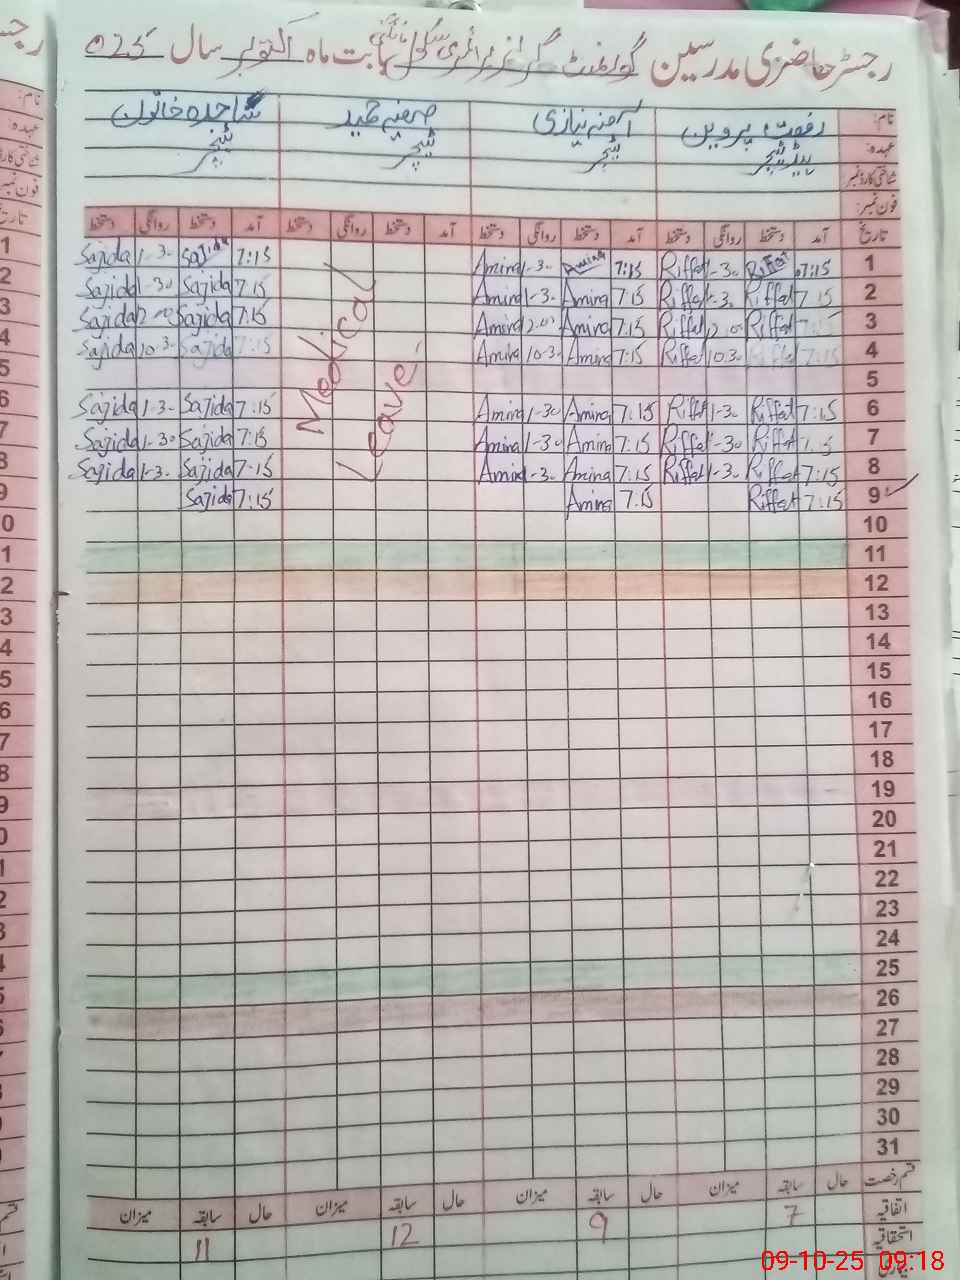 رجسٹر حاضری مدرسین گورنمنٹ گرلز پرائمری سکول بابت ماہ اکتوبر سال 025
نام: رفعت پروین آمنہ نیازی صفیہ حمید ساجدہ خاتون
عہدہ: ہیڈ ٹیچر ٹیچر ٹیچر ٹیچر
شناختی کارڈ نمبر
فون نمبر:
تاریخ آمد دستخط روانگی دستخط آمد دستخط روانگی دستخط آمد دستخط روانگی دستخط آمد دستخط روانگی دستخط
Sajida 1-3- Sajida 7:15 Amina 1-3- Amina 7:15 Riffat 1-3- Riffat 7:15 1
Sajida 1-30 Sajida 7:15 Amina 1-3- Amina 7:15 Riffat 1-3- Riffat 7:15 2
Sajida Sajida 7:15 Amina 12.00 Amina 7:15 Riffat 12.00 Riffat 7:15 3
Sajida 10-3- Sajida 7:15 Amina 10-3- Amina 7:15 Riffat 10.3- Riffat 7:15 4
5
Sajida 1-3- Sajida 7:15 Amina 1-30 Amina 7:15 Riffat 1-3- Riffat 7:15 6
Sajida 1-30 Sajida 7:15 Amina 1-30 Amina 7:15 Riffat 1-30 Riffat 7:15 7
Sajida 1-3- Sajida 7-15 Amina 1-3- Amina 7:15 Riffat 1-3- Riffat 7:15 8
Sajida 7:15 Amina 7.15 Riffat 7:15 9
Medical
Leave
10
11
12
13
14
15
16
17
18
19
20
21
22
23
24
25
26
27
28
29
30
31
قسم رخصت حال سابقہ میزان حال سابقہ میزان حال سابقہ میزان حال سابقہ میزان
اتفاقیہ 7 9 12 11
استحقاقیہ
بیماری
09-10-25 09:18